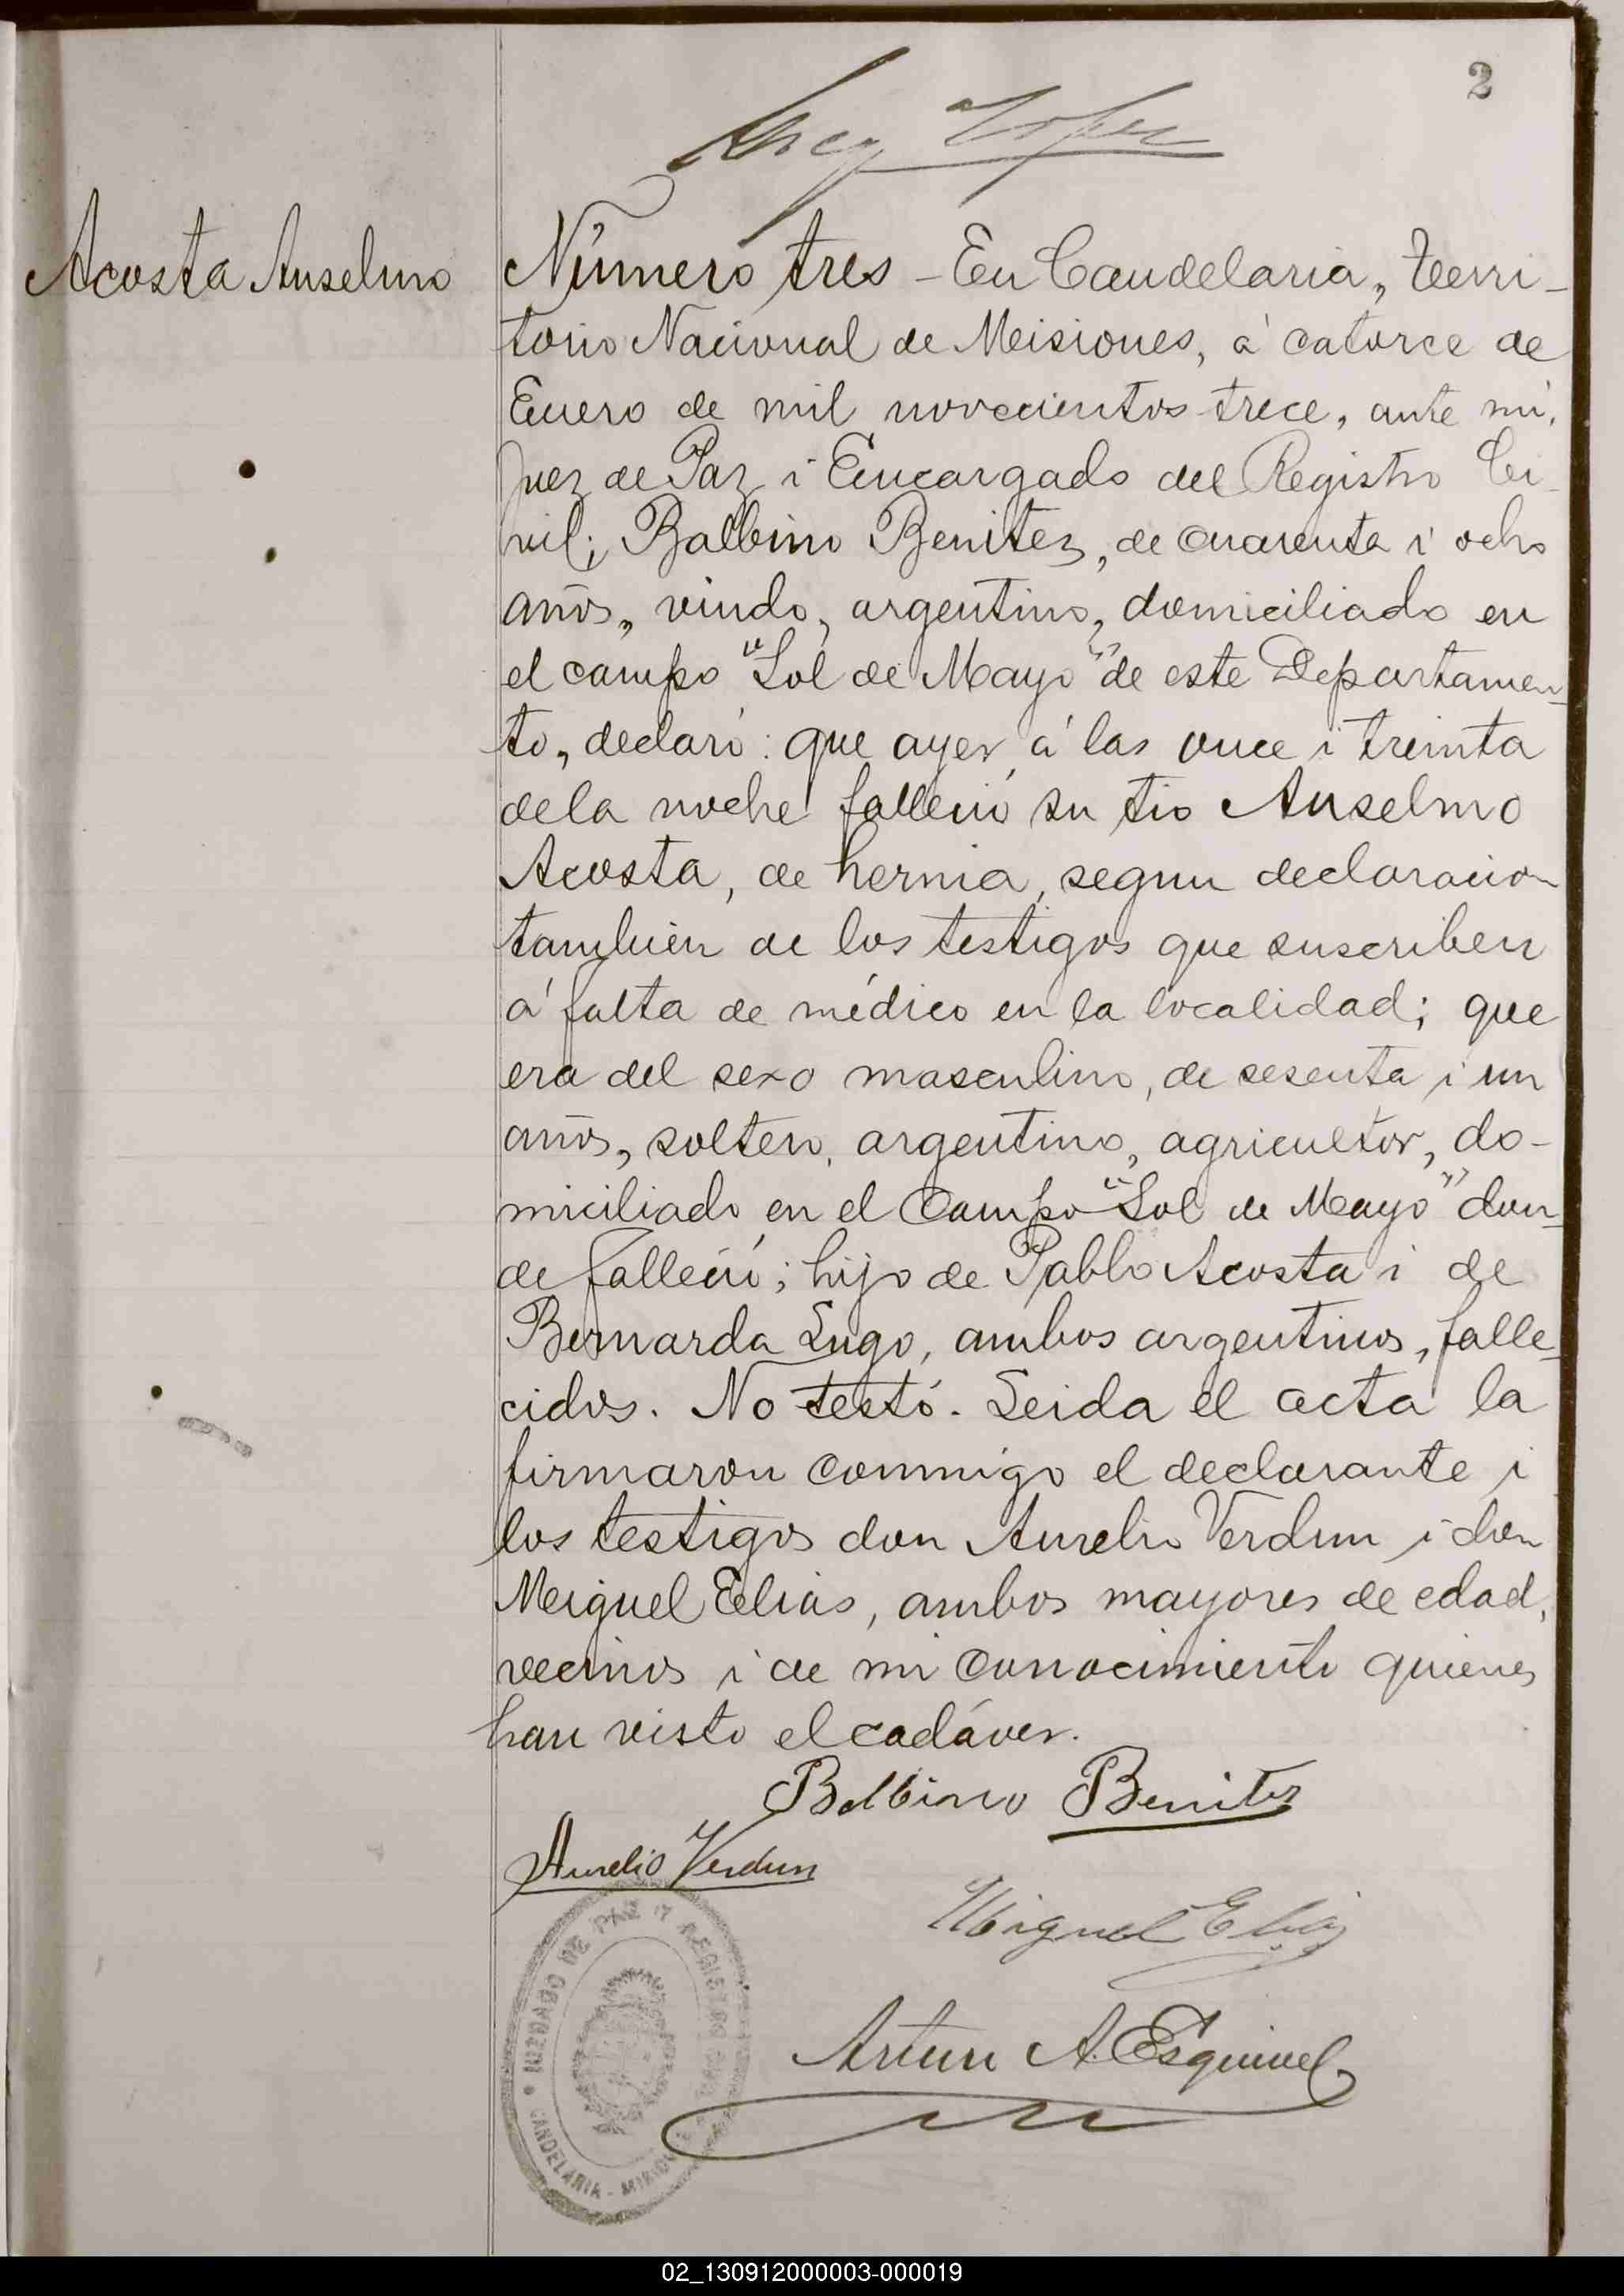 2
Acosta Anselmo
Número tres - En Candelaria, Terri-
torio Nacional de Misiones, á catorce de
Enero de mil novecientos trece, ante mí,
Juez de Paz i Encargado del Registro Ci-
vil; Balbino Benitez, de cuarenta i ocho
años, viudo, argentino, domiciliado en
el campo "Sol de Mayo" de este Departamen-
to, declaró: que ayer á las once i treinta
de la noche falleció su tio Anselmo
Acosta, de hernia, segun declaracion
también de los testigos que suscriben
á falta de médico en la localidad; que
era del sexo masculino, de sesenta i un
años, soltero, argentino, agricultor, do-
miciliado en el Campo "Sol de Mayo" don-
de falleció; hijo de Pablo Acosta i de
Bernarda Lugo, ambos argentinos, falle-
cidos. No testó. Leida el acta la
firmaron conmigo el declarante i
los testigos don Aurelio Verdun i don
Miguel Elias, ambos mayores de edad,
vecinos i de mi conocimiento quienes
han visto el cadáver.
Balbino Benitez
Aurelio Verdun
Miguel Elias
Arturo A. Esquivel
JUZGADO DE PAZ Y REGISTRO CIVIL
CANDELARIA - MISIONES
02_130912000003-000019